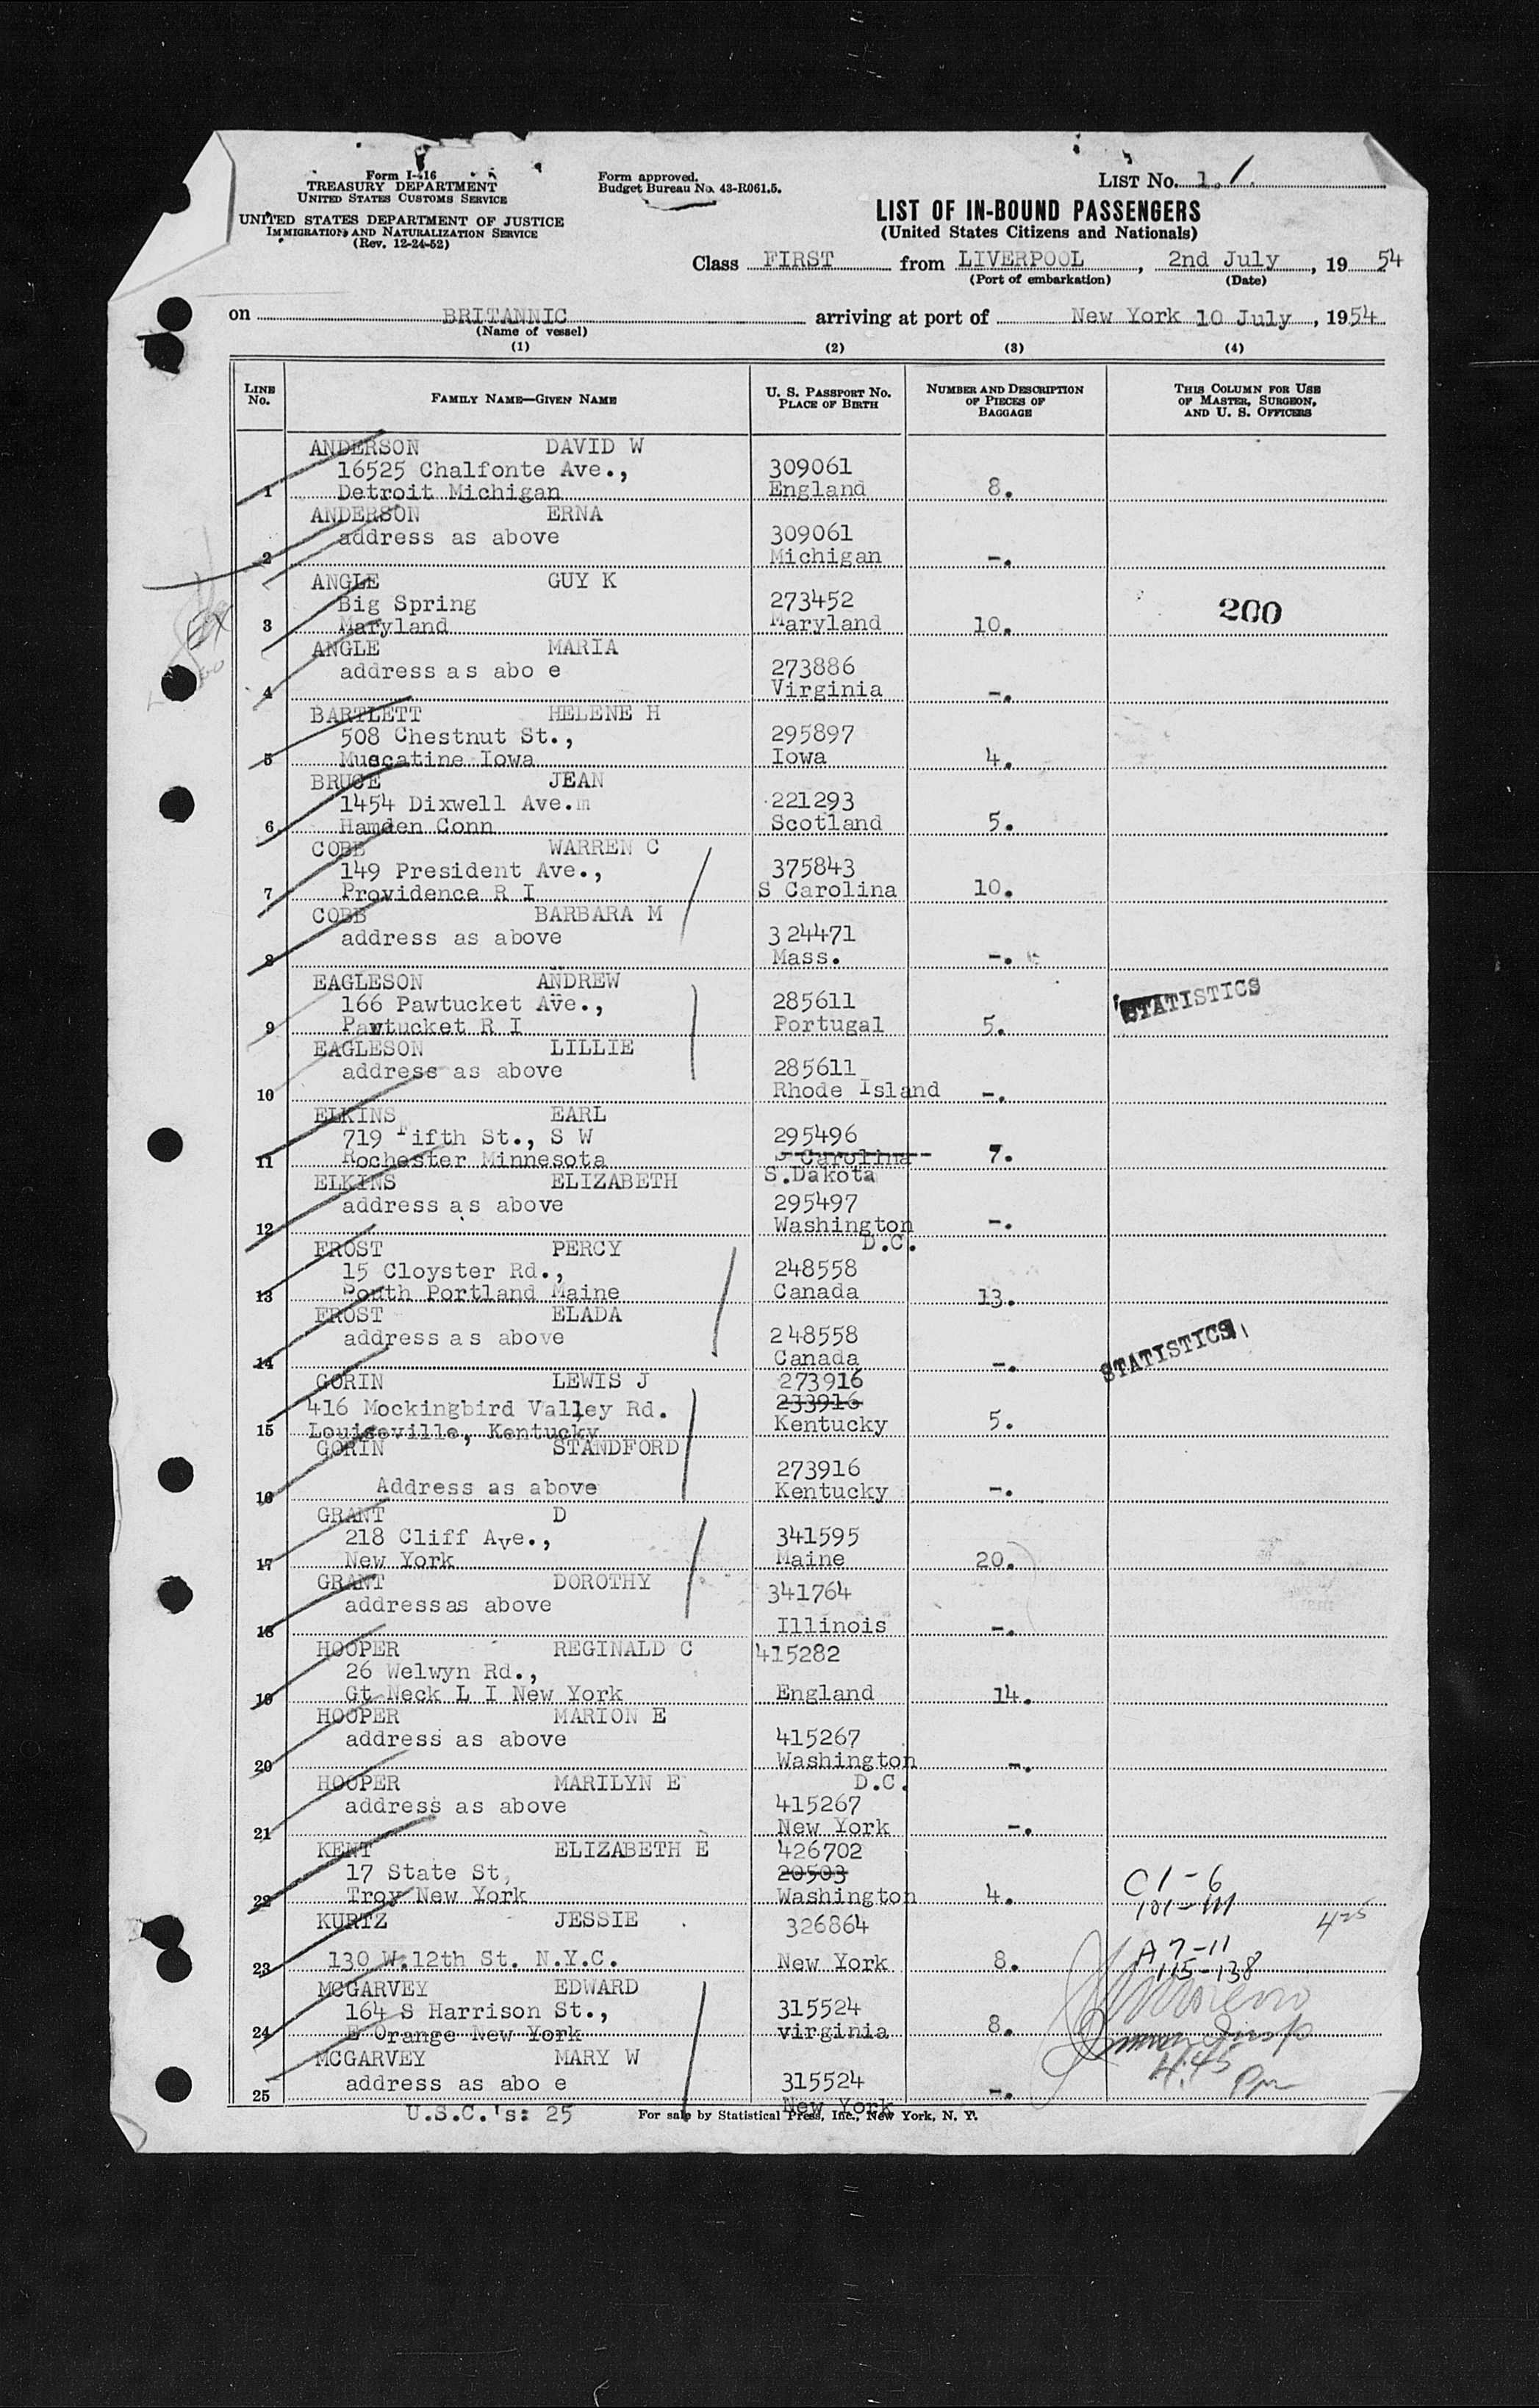 Form I-416
TREASURY DEPARTMENT
UNITED STATES CUSTOMS SERVICE
UNITED STATES DEPARTMENT OF JUSTICE
IMMIGRATION AND NATURALIZATION SERVICE
(Rev. 12-24-52)
Form approved.
Budget Bureau No. 43-R061.5.
LIST NO. 1. 1.
LIST OF IN-BOUND PASSENGERS
(United States Citizens and Nationals)
Class FIRST from LIVERPOOL, 2nd July, 19 54
(Port of embarkation) (Date)
on BRITANNIC arriving at port of New York 10 July, 1954
(Name of vessel)
(1) (2) (3) (4)
LINE NO. FAMILY NAME—GIVEN NAME U. S. PASSPORT NO. PLACE OF BIRTH NUMBER AND DESCRIPTION OF PIECES OF BAGGAGE THIS COLUMN FOR USE OF MASTER, SURGEON, AND U. S. OFFICERS
ANDERSON DAVID W
16525 Chalfonte Ave., 309061
1 Detroit Michigan England 8.
ANDERSON ERNA
address as above 309061
2 Michigan -.
ANGLE GUY K
Big Spring 273452 200
3 Maryland Maryland 10.
ANGLE MARIA
address as abo e 273886
4 Virginia -.
BARTLETT HELENE H
508 Chestnut St., 295897
5 Muscatine Iowa Iowa 4.
BRUCE JEAN
1454 Dixwell Ave.m 221293
6 Hamden Conn Scotland 5.
COBB WARREN C
149 President Ave., 375843
7 Providence R I S Carolina 10.
COBB BARBARA M
address as above 324471
8 Mass. -.
EAGLESON ANDREW
166 Pawtucket Ave., 285611 STATISTICS
9 Pawtucket R I Portugal 5.
EAGLESON LILLIE
address as above 285611
10 Rhode Island -.
ELKINS EARL
719 Fifth St., S W 295496
11 Rochester Minnesota S Carolina 7.
S.Dakota
ELKINS ELIZABETH
address as above 295497
12 Washington -.
D.C.
FROST PERCY
15 Cloyster Rd., 248558
13 South Portland Maine Canada 13.
FROST ELADA
address as above 248558
14 Canada -. STATISTICS
GORIN LEWIS J 273916
416 Mockingbird Valley Rd. 233916
15 Louiseville, Kentucky Kentucky 5.
GORIN STANDFORD
273916
16 Address as above Kentucky -.
GRANT D
218 Cliff Ave., 341595
17 New York Maine 20.
GRANT DOROTHY
address as above 341764
18 Illinois -.
HOOPER REGINALD C 415282
26 Welwyn Rd.,
19 Gt Neck L I New York England 14.
HOOPER MARION E
address as above 415267
20 Washington -.
D.C.
HOOPER MARILYN E
address as above 415267
21 New York -.
KENT ELIZABETH E 426702
17 State St, 20503 C 1-6
22 Troy New York Washington 4. 101-111
KURTZ JESSIE 326864 425
23 130 W.12th St. N.Y.C. New York 8. A 7-11
115-138
MCGARVEY EDWARD
164 S Harrison St., 315524
24 E Orange New York virginia 8.
MCGARVEY MARY W 4.45 Pm
address as abo e 315524
25 -.
New York
U.S.C.'s: 25
For sale by Statistical Press, Inc., New York, N. Y.